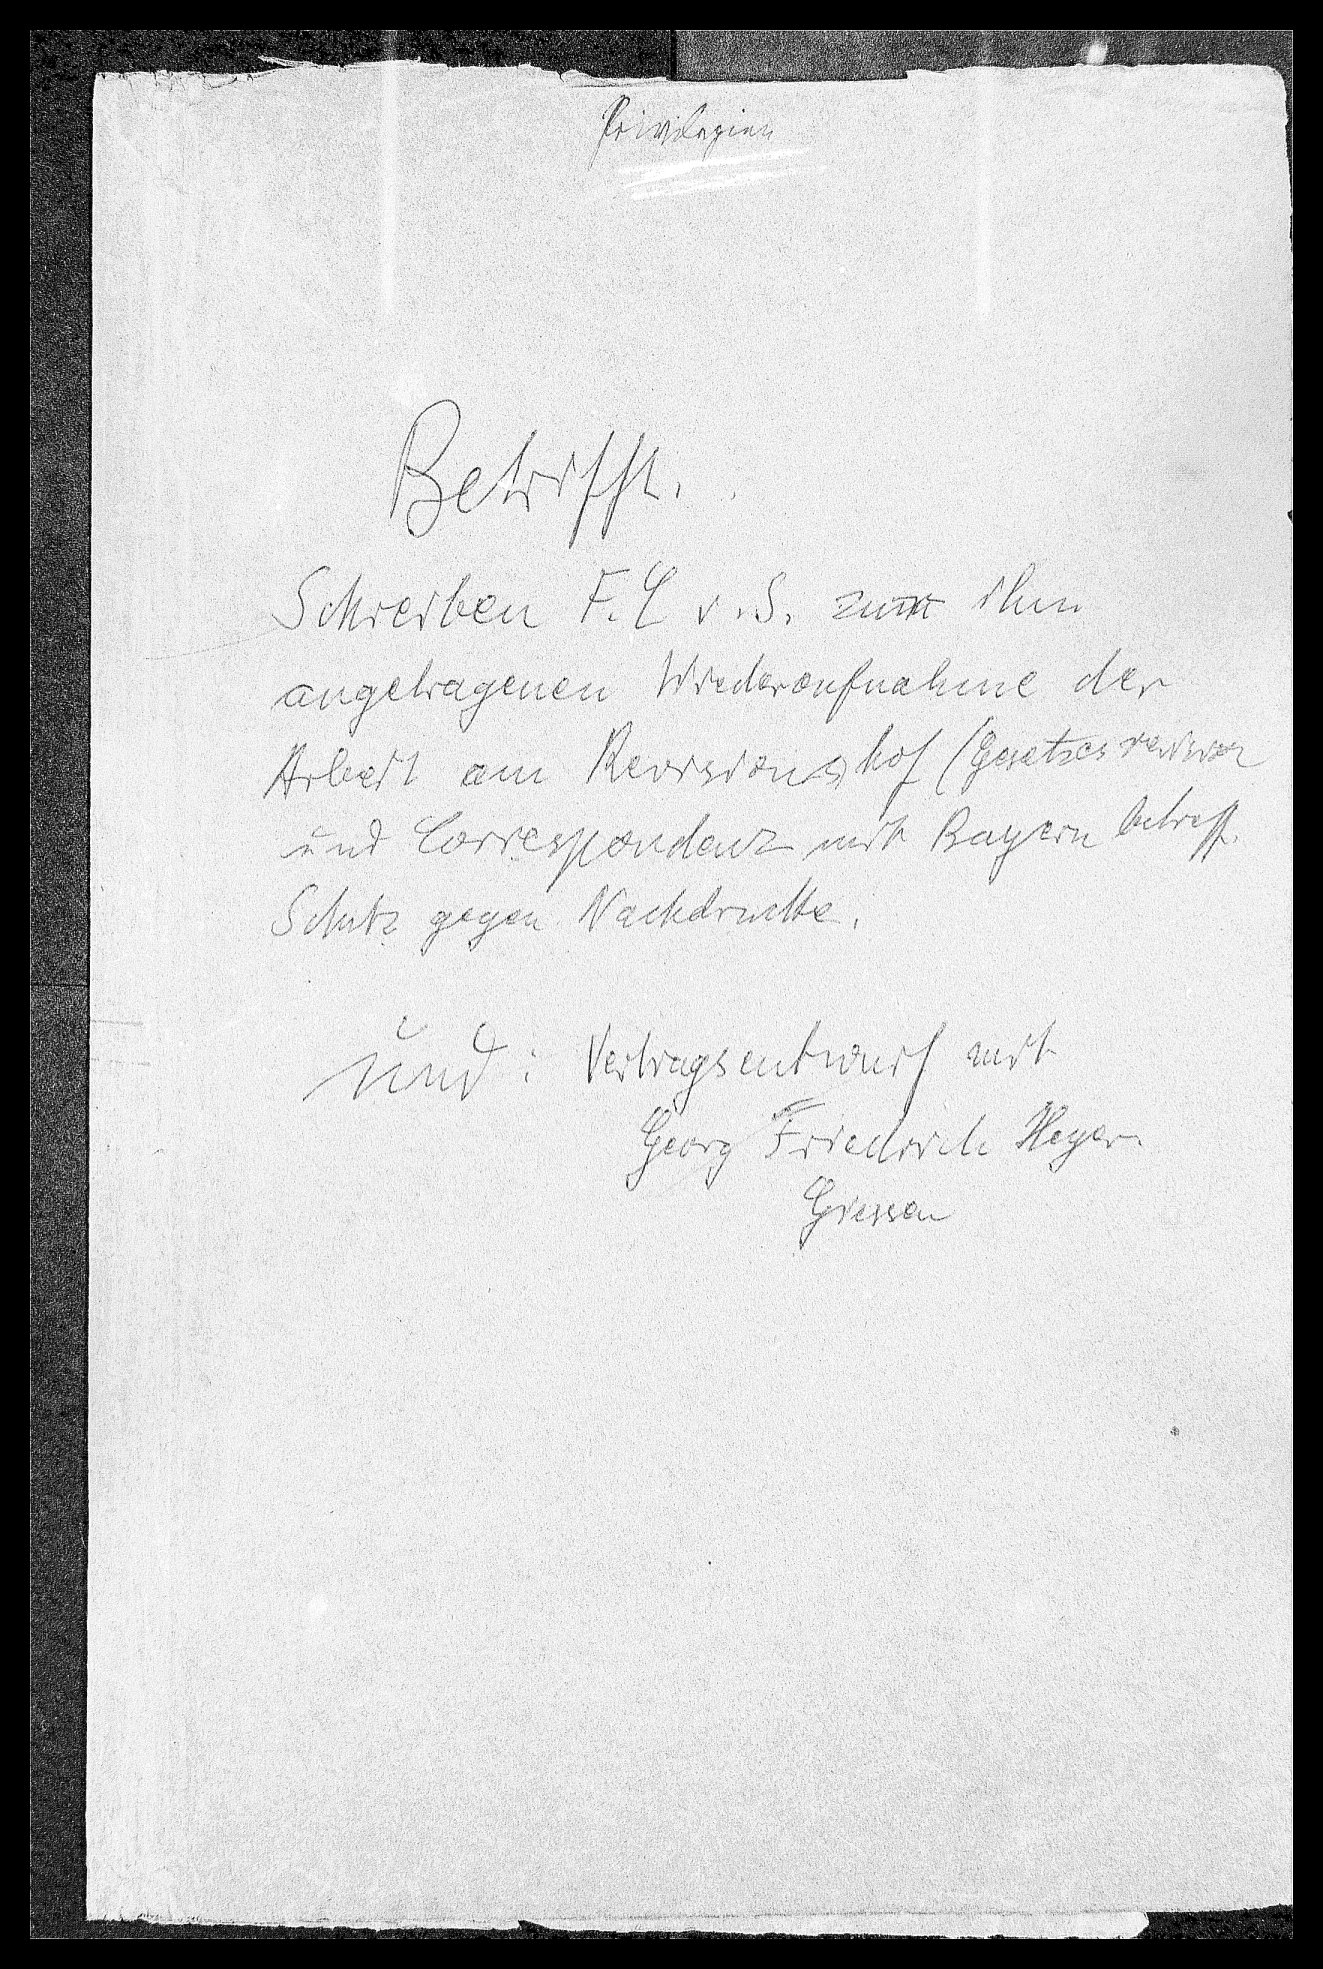 Privilegien
Betrifft.
Schreiben F. C v. S. zum ihm
angetragenen Wiederaufnahme der
Arbeit am Revisionshof (Gesetzesrevision
und Correspondenz mit Bayern betreff.
Schutz gegen Nachdrucke.
und: Vertragsentwurf mit
Georg Friedrich Heyer.
Giessen